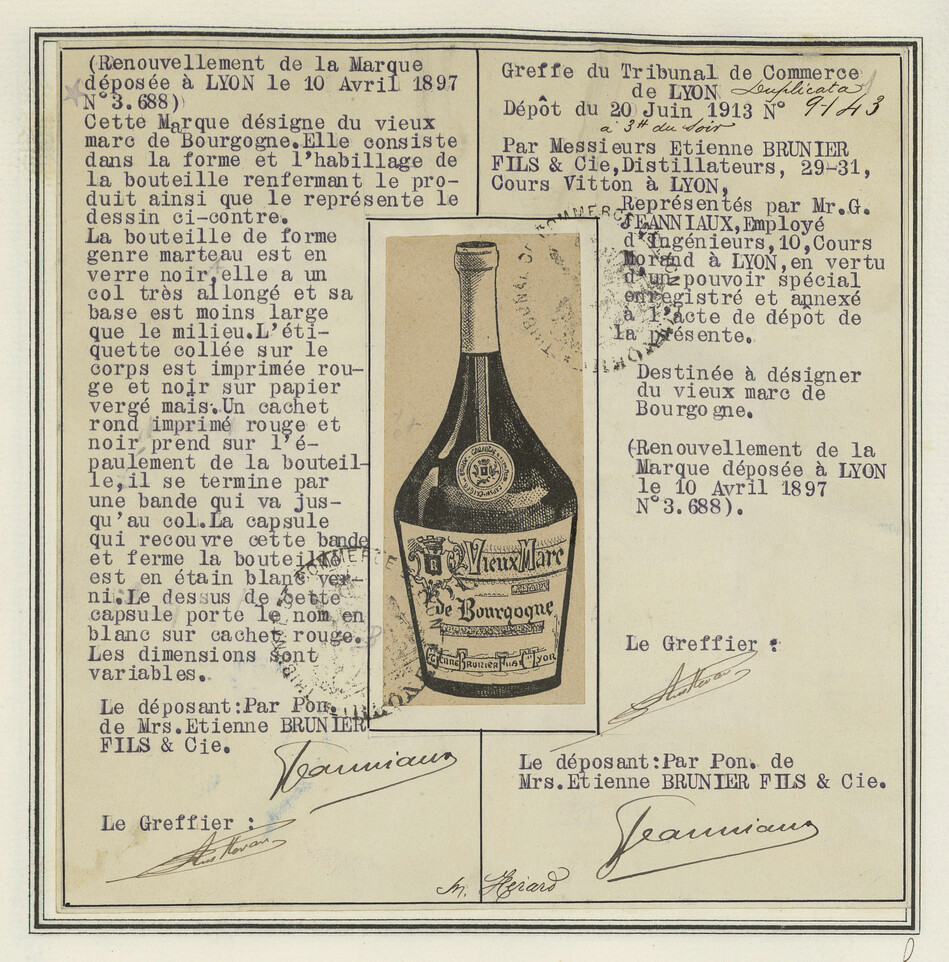 (Renouvellement de la Marque
déposée à LYON le 10 Avril 1897
N°3.688)
Cette Marque désigne du vieux
marc de Bourgogne.Elle consiste
dans la forme et l'habillage de
la bouteille renfermant le pro-
duit ainsi que le représente le
dessin ci-contre.
La bouteille de forme
genre marteau est en
verre noir,elle a un
col très allongé et sa
base est moins large
que le milieu.L'éti-
quette collée sur le
corps est imprimée rou-
ge et noir sur papier
vergé maïs.Un cachet
rond imprimé rouge et
noir prend sur l'é-
paulement de la bouteil-
le,il se termine par
une bande qui va jus-
qu'au col.La capsule
qui recouvre cette bande
et ferme la bouteille
est en étain blanc ver-
ni.Le dessus de cette
capsule porte le nom en
blanc sur cachet rouge.
Les dimensions sont
variables.
Le déposant:Par Pon.
de Mrs.Etienne BRUNIER
FILS & Cie.
Jeanniaux
Le Greffier :
Greffe du Tribunal de Commerce
de LYON Duplicata
Dépôt du 20 Juin 1913 N° 9143
à 3H du soir
Par Messieurs Etienne BRUNIER
FILS & Cie,Distillateurs, 29-31,
Cours Vitton à LYON,
Représentés par Mr.G.
JEANNIAUX,Employé
d'Ingénieurs,10,Cours
Morand à LYON,en vertu
d'un pouvoir spécial
enregistré et annexé
à l'acte de dépôt de
la présente.
Destinée à désigner
du vieux marc de
Bourgogne.
(Renouvellement de la
Marque déposée à LYON
le 10 Avril 1897
N°3.688).
Le Greffier :
Le déposant:Par Pon. de
Mrs.Etienne BRUNIER FILS & Cie.
Jeanniaux
Vieux Marc
de Bourgogne
Etienne Brunier Fils Lyon
TRIBUNAL DE COMMERCE
LYON
TRIBUNAL DE COMMERCE
LYON
M. Hérard